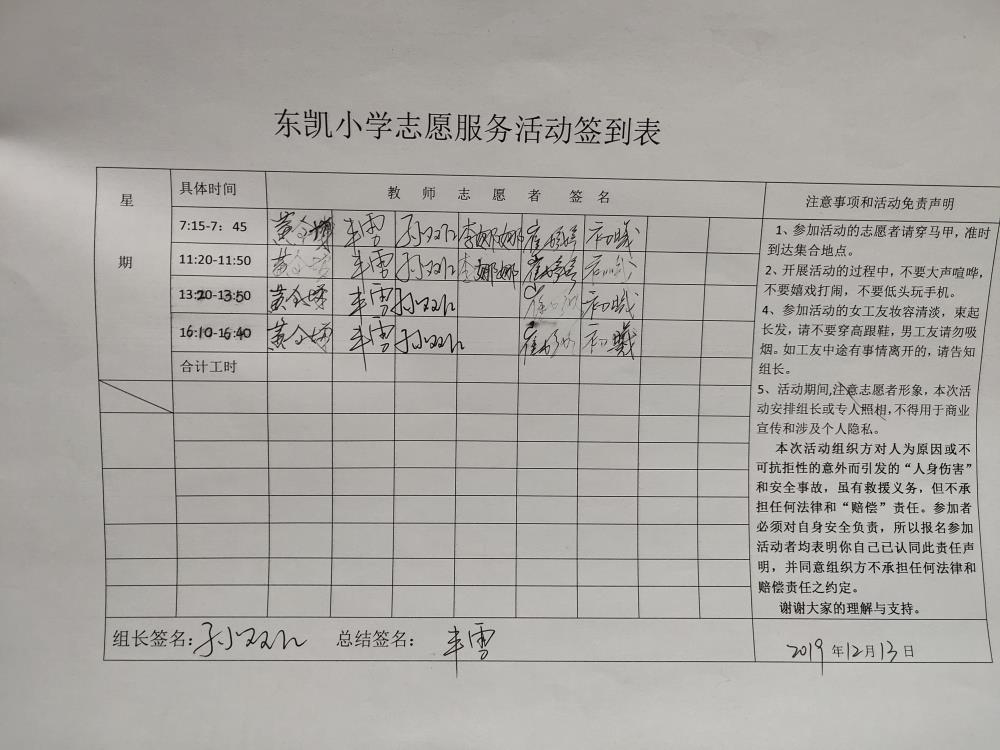 东凯小学志愿服务活动签到表
星期
具体时间
教师志愿者签名
注意事项和活动免责声明
7:15-7：45
丰雪 孙双 李娜娜
11:20-11:50
丰雪 孙双 李娜娜
13:20-13:50
丰雪 孙双
16:10-16:40
丰雪 孙双
合计工时
1、参加活动的志愿者请穿马甲，准时
到达集合地点。
2、开展活动的过程中，不要大声喧哗，
不要嬉戏打闹，不要低头玩手机。
4、参加活动的女工友妆容清淡，束起
长发，请不要穿高跟鞋，男工友请勿吸
烟。如工友中途有事情离开的，请告知
组长。
5、活动期间,注意志愿者形象，本次活
动安排组长或专人照相,不得用于商业
宣传和涉及个人隐私。
本次活动组织方对人为原因或不
可抗拒性的意外而引发的“人身伤害”
和安全事故，虽有救援义务，但不承
担任何法律和“赔偿”责任。参加者
必须对自身安全负责，所以报名参加
活动者均表明你自己已认同此责任声
明，并同意组织方不承担任何法律和
赔偿责任之约定。
谢谢大家的理解与支持。
组长签名：孙双 总结签名： 丰雪
2019年12月13日